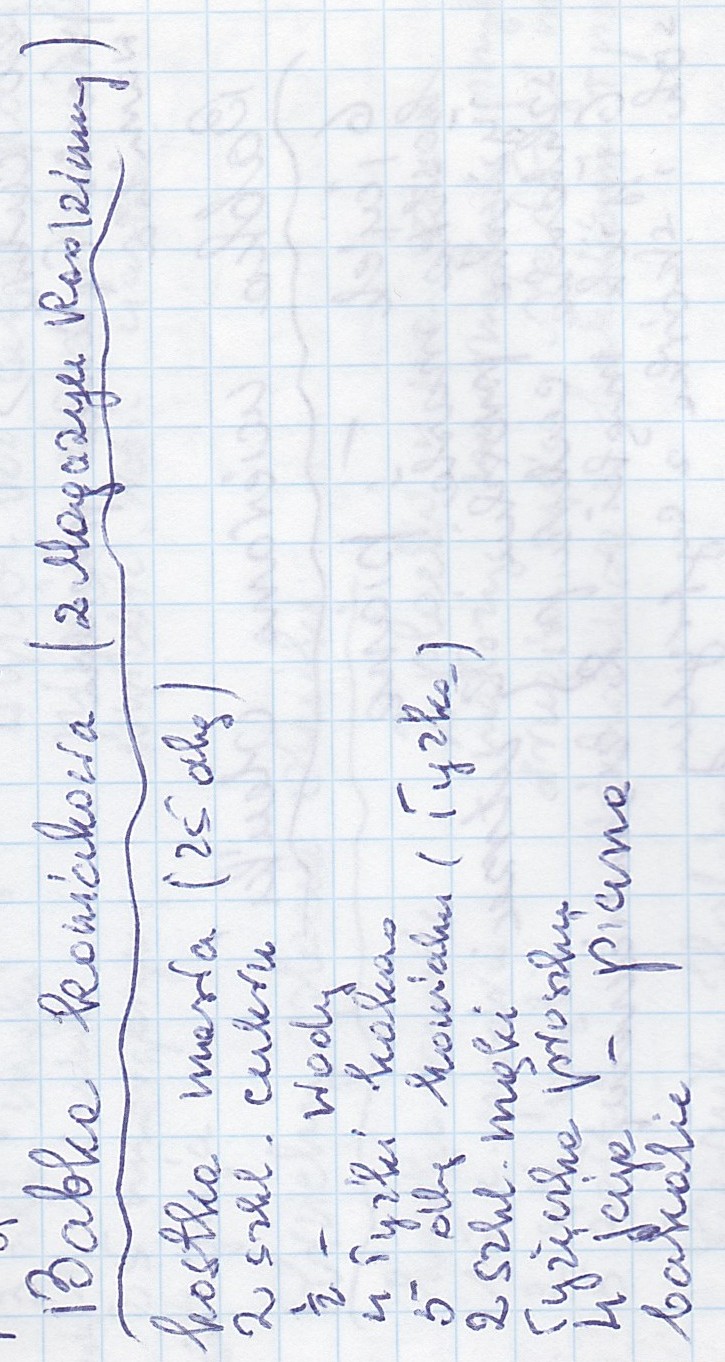 Babka koniakowa (z Magazyn Rodzinny)
kostka masła (25 dkg)
2 szkl. cukru
½ - wody
4 łyżki kakao
5 dkg koniaku (łyżka)
2 szkl. mąki
łyżeczka proszku
4 jaja - piana
bakalie